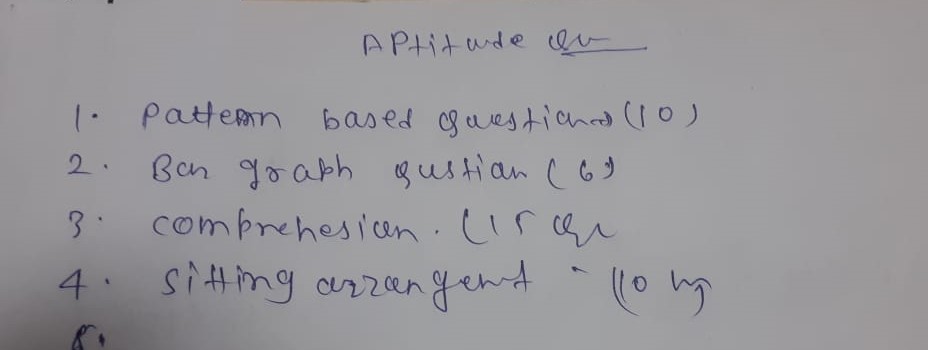 APtitude Qu
1. Pattern based questions (10)
2. Bar graph qustian (6)
3. comprehesion. (15 Qu
4. sitting arrangent - (10
5.